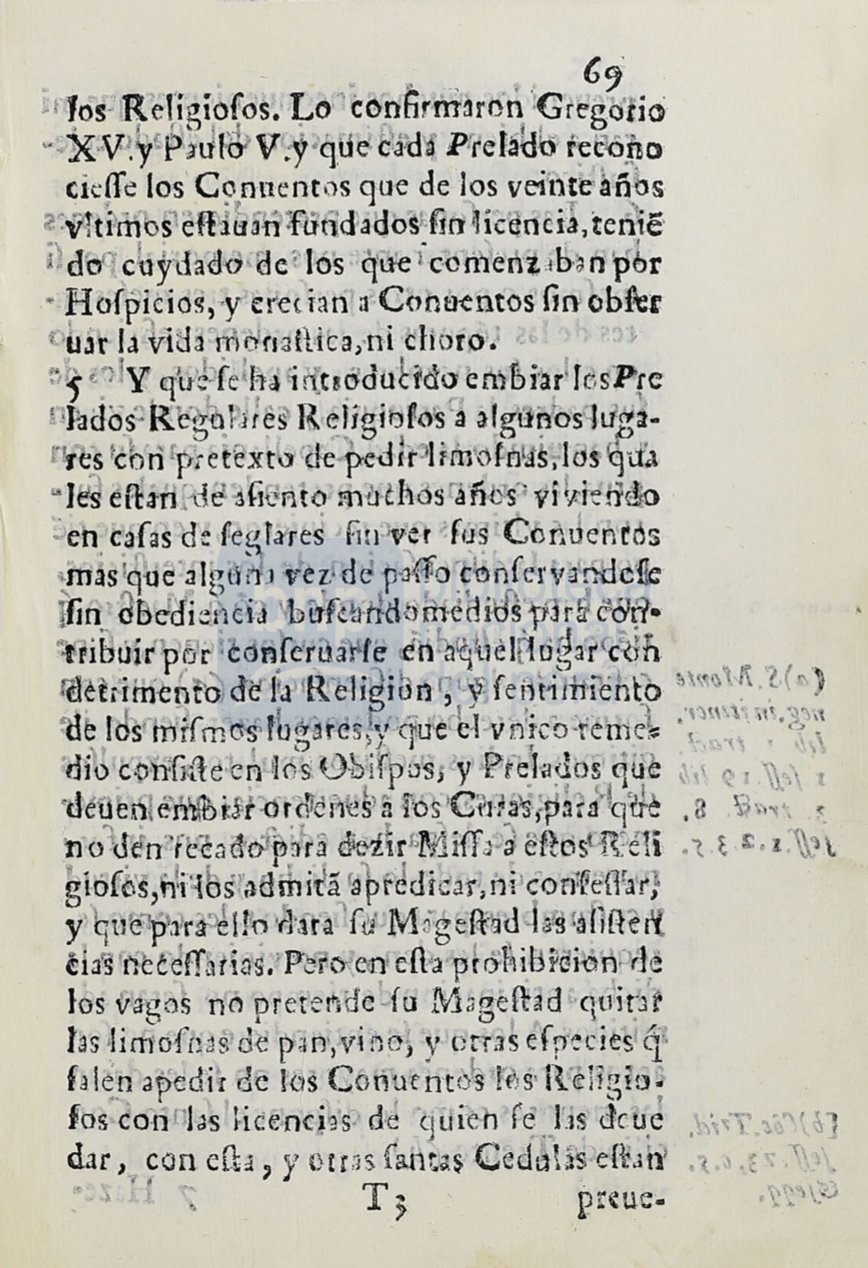 69
los Religiosos. Lo confirmaron Gregorio
XV. y Paulo V. y que cada Prelado recono
ciesse los Conuentos que de los veinte años
vltimos estauan fundados sin licencia, teniẽ
do cuydado de los que comenzaban por
Hospicios, y crecian a Conuentos sin obser
uar la vida monastica, ni choro.
5 Y que se ha introducido embiar los Pre
lados Regulares Religiosos a algunos luga-
res con pretexto de pedir limosnas, los qua
les estan de asiento muchos años viviendo
en casas de seglares sin ver sus Conuentos
mas que alguna vez de passo conservandose
sin obediencia buscando medios para con-
tribuir por conseruarse en aquel lugar con
detrimento de la Religion, y sentimiento
de los mismos lugares, y que el vnico reme-
dio consiste en los Obispos, y Prelados que
deuen embiar ordenes a los Curas, para que
no den recado para dezir Missa a estos Reli
giosos, ni los admitã a predicar, ni confessar,
y que para ello dara su Magestad las asisten
cias necessarias. Pero en esta prohibicion de
los vagos no pretende su Magestad quitar
las limosnas de pan, vino, y otras especies q̃
salen a pedir de los Conuentos los Religio-
sos con las licencias de quien se las deue
dar, con esta, y otras santas Cedulas estan
T3 preue-